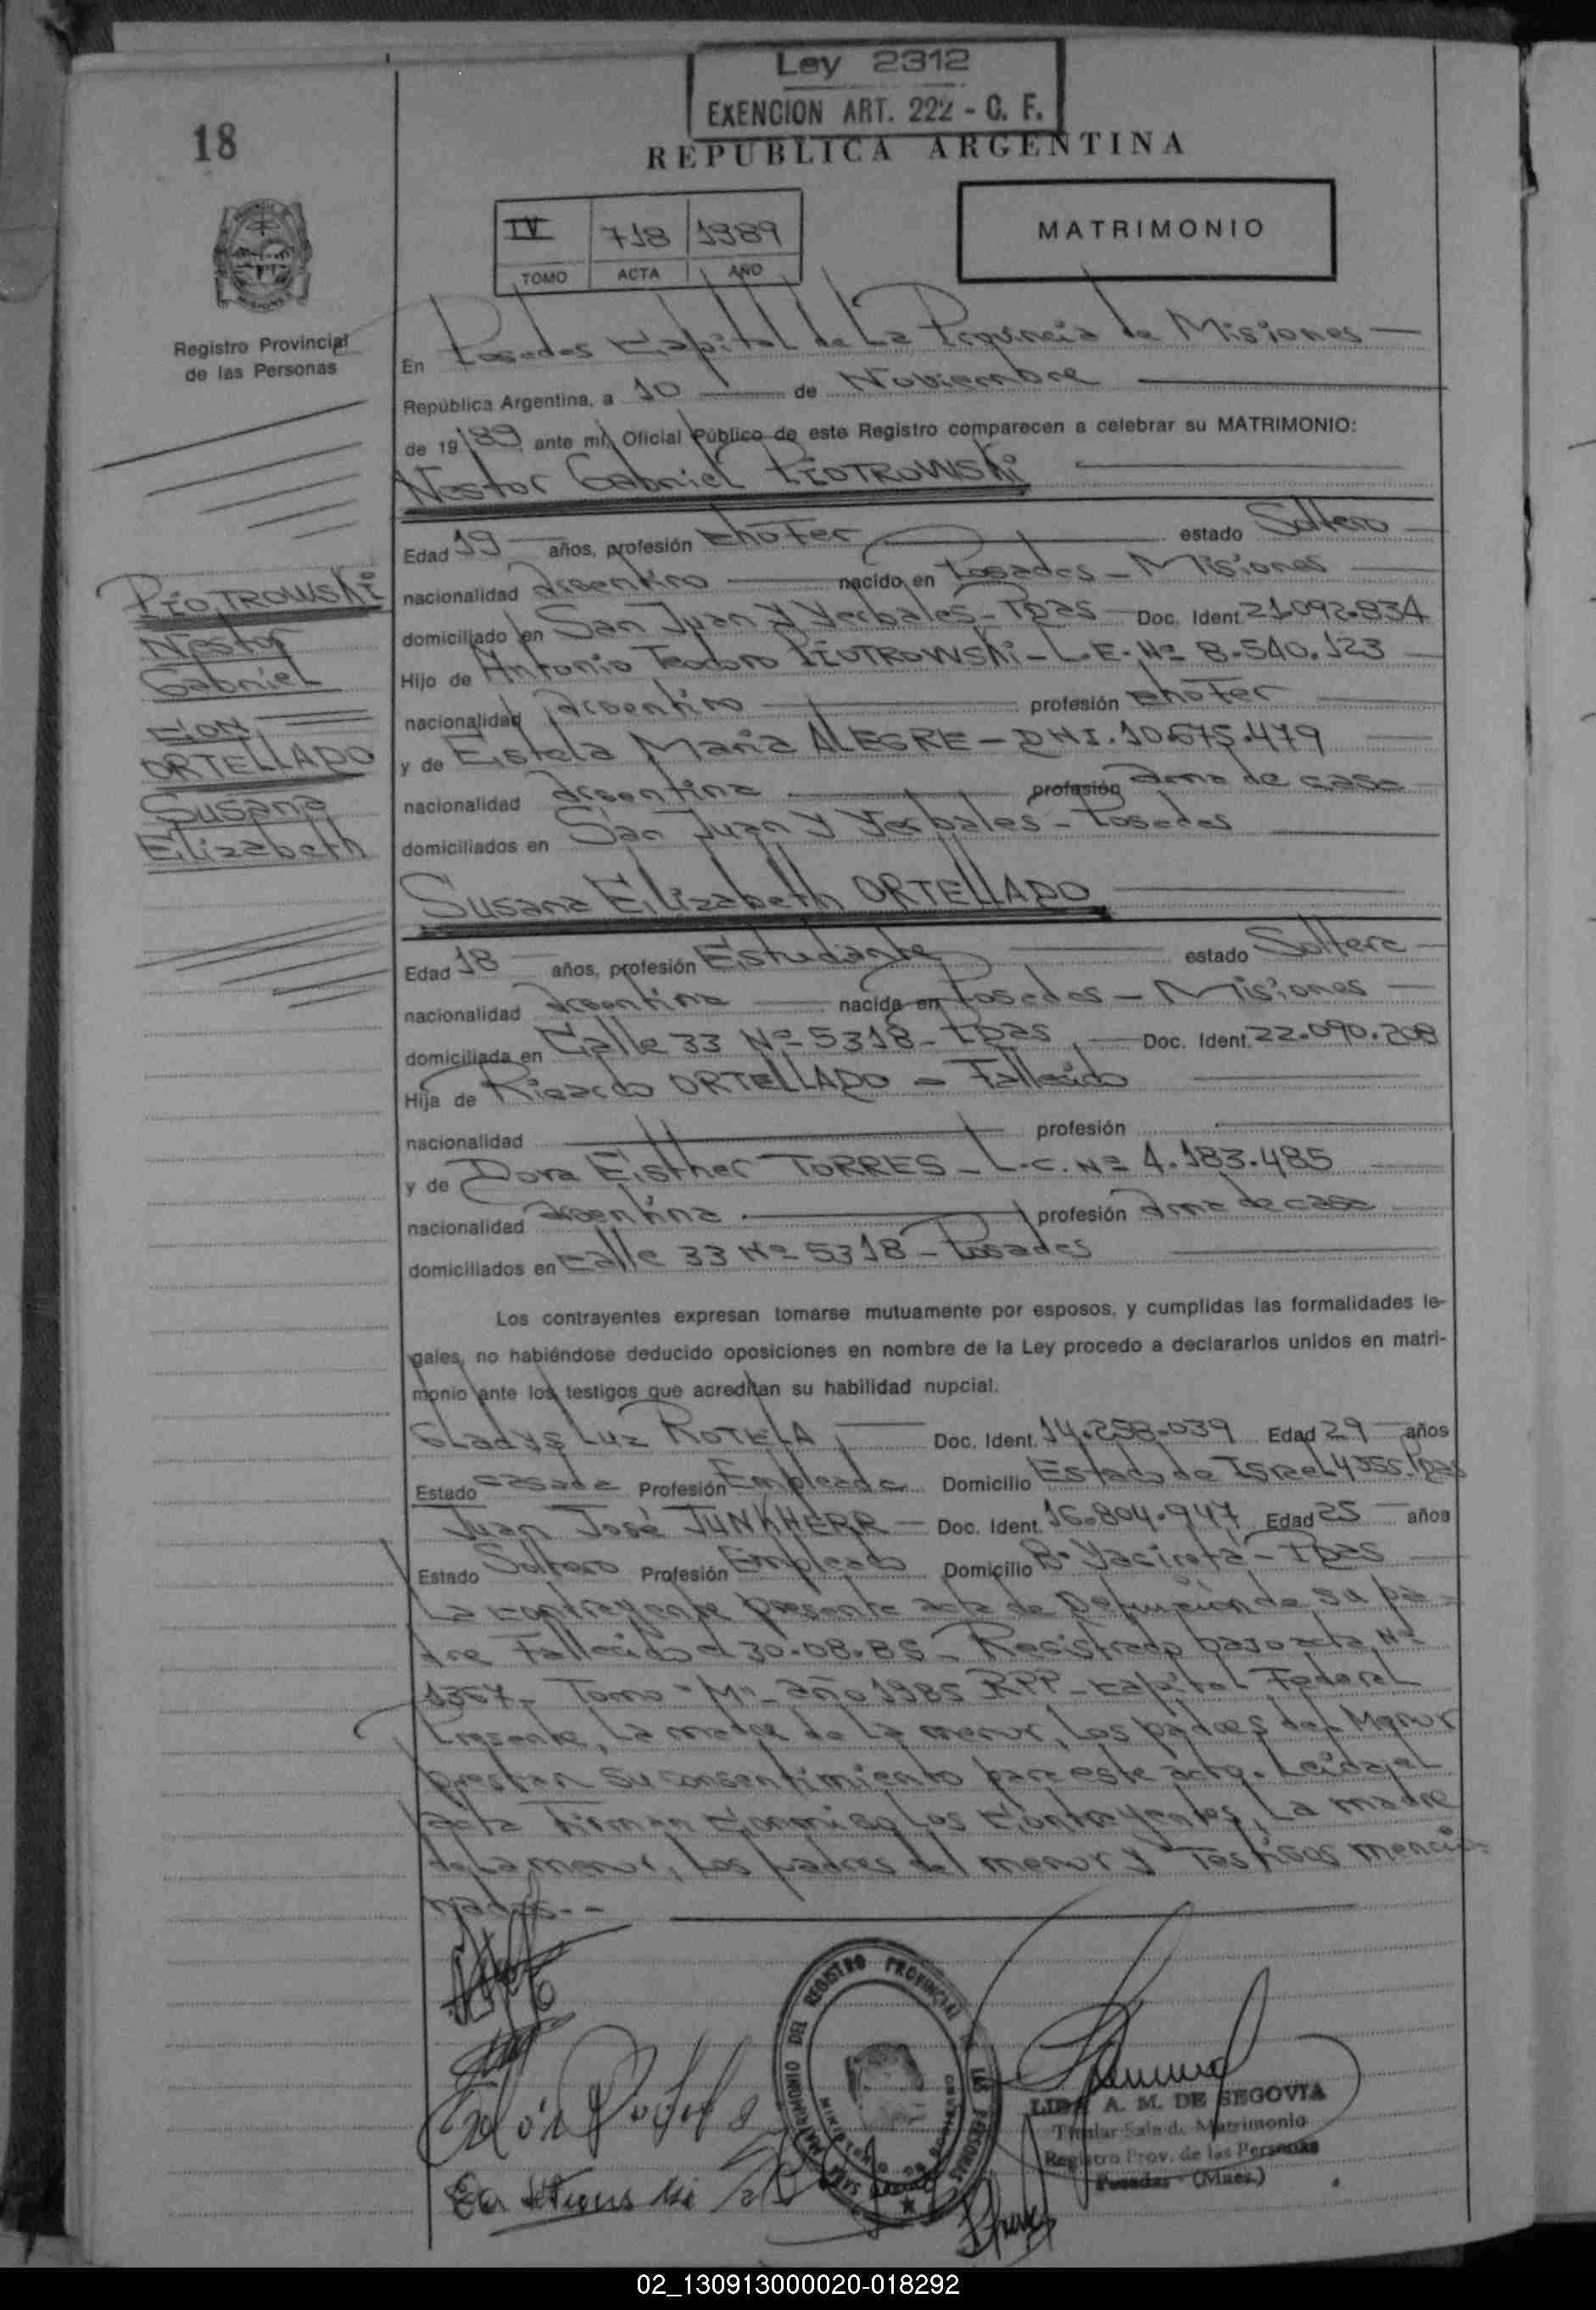 Ley 2312
EXENCION ART. 222 - C. F.
18
REPUBLICA ARGENTINA
IV 718 1989
TOMO ACTA AÑO
MATRIMONIO
Registro Provincial
de las Personas
En Posadas Capital de La Provincia de Misiones
República Argentina, a 10 de Noviembre
de 1989, ante mí, Oficial Público de este Registro comparecen a celebrar su MATRIMONIO:
Nestor Gabriel PIOTROWSKI
Edad 19 años, profesión Chofer estado Soltero
nacionalidad Argentino nacido en Posadas - Misiones
domiciliado en San Juan y Yerbales - Pdas Doc. Ident. 21.092.834
Hijo de Antonio Teodoro PIOTROWSKI - L.E. Nº 8.540.123
nacionalidad Argentino profesión Chofer
y de Estela Maria ALEGRE - DNI. 10.675.479
nacionalidad Argentina profesión ama de casa
domiciliados en San Juan y Yerbales - Posadas
PIOTROWSKI
Nestor
Gabriel
CON
ORTELLADO
Susana
Elizabeth
Susana Elizabeth ORTELLADO
Edad 18 años, profesión Estudiante estado Soltera
nacionalidad Argentina nacida en Posadas - Misiones
domiciliada en Calle 33 Nº 5318 - Pdas Doc. Ident. 22.090.208
Hija de Ricardo ORTELLADO - Fallecido
nacionalidad profesión
y de Dora Esther TORRES - L.C. Nº 4.183.485
nacionalidad Argentina profesión ama de casa
domiciliados en Calle 33 Nº 5318 - Posadas
Los contrayentes expresan tomarse mutuamente por esposos, y cumplidas las formalidades le-
gales, no habiéndose deducido oposiciones en nombre de la Ley procedo a declararlos unidos en matri-
monio ante los testigos que acreditan su habilidad nupcial.
Gladys Luz ROTELA Doc. Ident. 14.258.039 Edad 29 años
Estado Casada Profesión Empleada Domicilio Estado de Israel 4355 - Pdas
Juan José JUNKHERR Doc. Ident. 16.804.947 Edad 25 años
Estado Soltero Profesión Empleado Domicilio Bº Yacireta - Pdas
La contrayente presenta acta de Defunción de su pa-
dre Fallecido el 30.08.85 - Registrado bajo acta Nº
1367 - Tomo "M" - año 1985 RPP - Capital Federal
Presente, La madre de La menor, Los padres del Menor
prestan su consentimiento para este acto. Leida el
acta Firman Conmigo Los Contrayentes, La madre
de La menor, Los padres del menor y Testigos mencio-
nados.--
SALA MATRIMONIO DEL REGISTRO PROVINCIAL DE LAS PERSONAS
MINISTERIO DE GOBIERNO
LIDA A. M. DE SEGOVIA
Titular Sala de Matrimonio
Registro Prov. de las Personas
Posadas - (Mnes.)
02_130913000020-018292